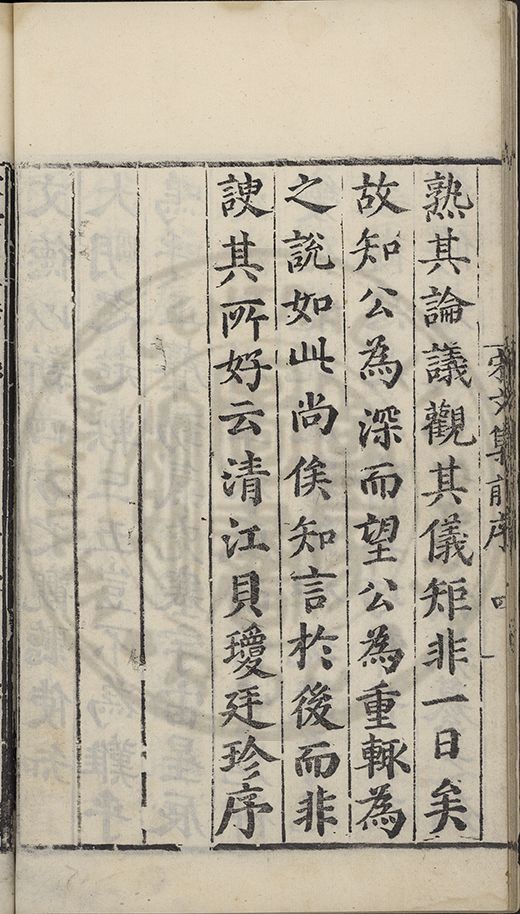 宋文集前序
熟其論議觀其儀矩非一日矣
故知公為深而望公為重輒為
之說如此尚俟知言於後而非
諛其所好云清江貝瓊廷珍序